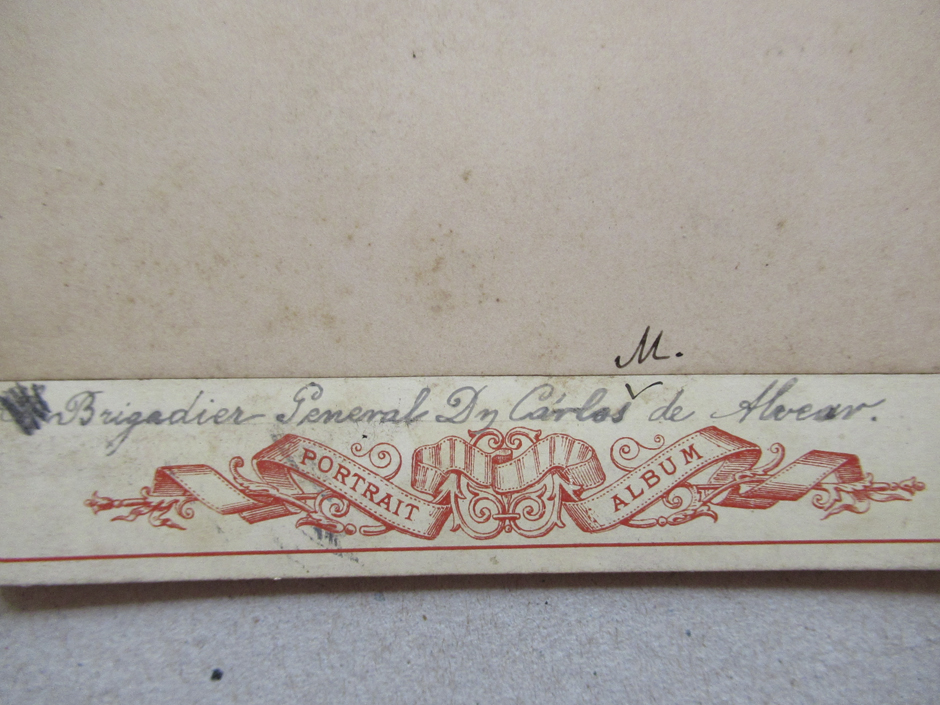 M.
Brigadier General Dn Cárlos de Alvear.
PORTRAIT ALBUM